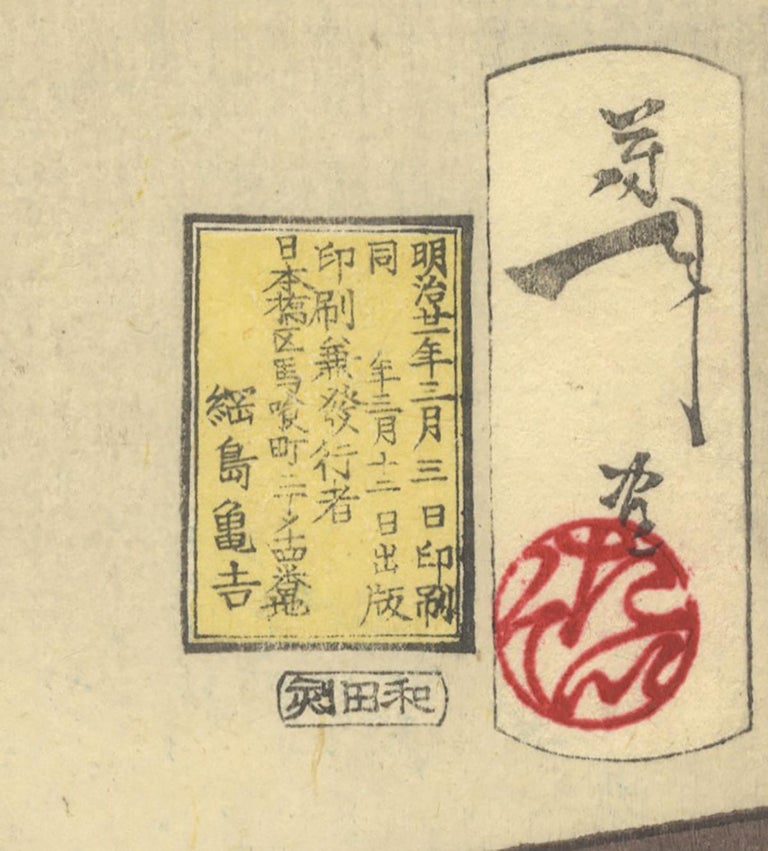 芳年
画
明治廿一年三月三日印刷
同年三月十二日出版
印刷兼發行者
日本橋区馬喰町二丁メ十四番地
綱島亀吉
和田刻